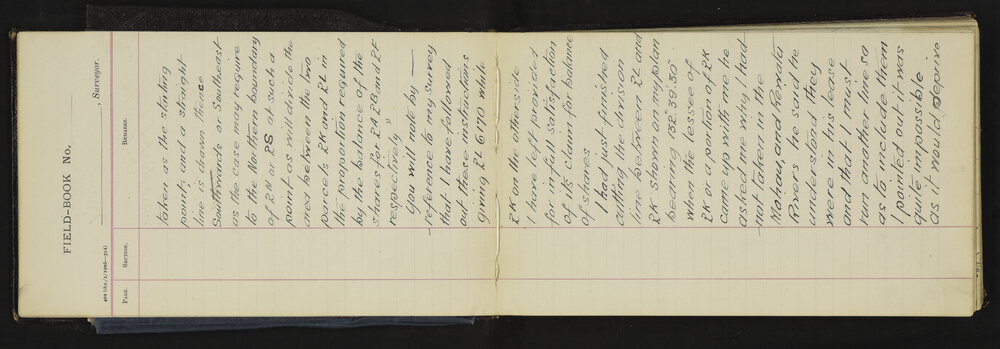 FIELD-BOOK No.
, Surveyor.
400 bks./1/1906—314]
PAGE. SECTION. REMARKS.
taken as the starting
point, and a straight
line is drawn thence
Southwards or Southeast
as the case may require
to the Northern boundary
of 2N or 2S at such a
point as will divide the
area between the two
parcels 2K and 2L in
the proportion required
by the balance of the
shares for 2A 2B and 2F
respectively"
You will note by —
reference to my survey
that I have followed
out these instructions
giving 2L 6170 while
2K on the other side
I have left provided
for in full satisfaction
of its claim for balance
of shares.
I had just finished
cutting the division
line between 2L and
2K shown on my plan
bearing 152.39.50"
when the lessee of
2K or a portion of 2K
came up with me he
asked me why I had
not taken in the
and
Rivers he said he
understood they
were in his lease
and that I must
run another line so
as to include them
I pointed out it was
quite impossible
as it would deprive